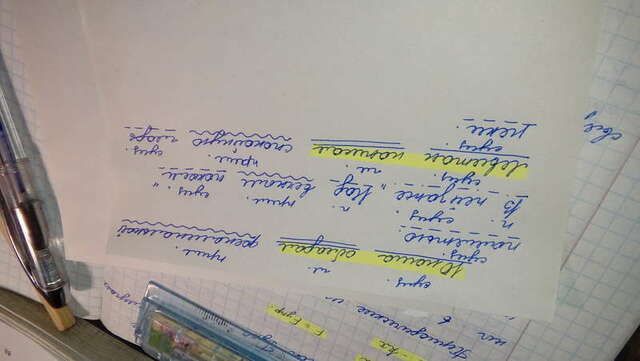 сущ. гл. прил.
Юноша обладал феноменальной
сущ.
памятью.
п. сущ. п. прил. сущ.
В пейзаже „Над вечным покоем“
сущ. гл. прил. сущ.
Левитан написал спокойную гладь
сущ.
реки.
F = Fупр.
Периодические
все